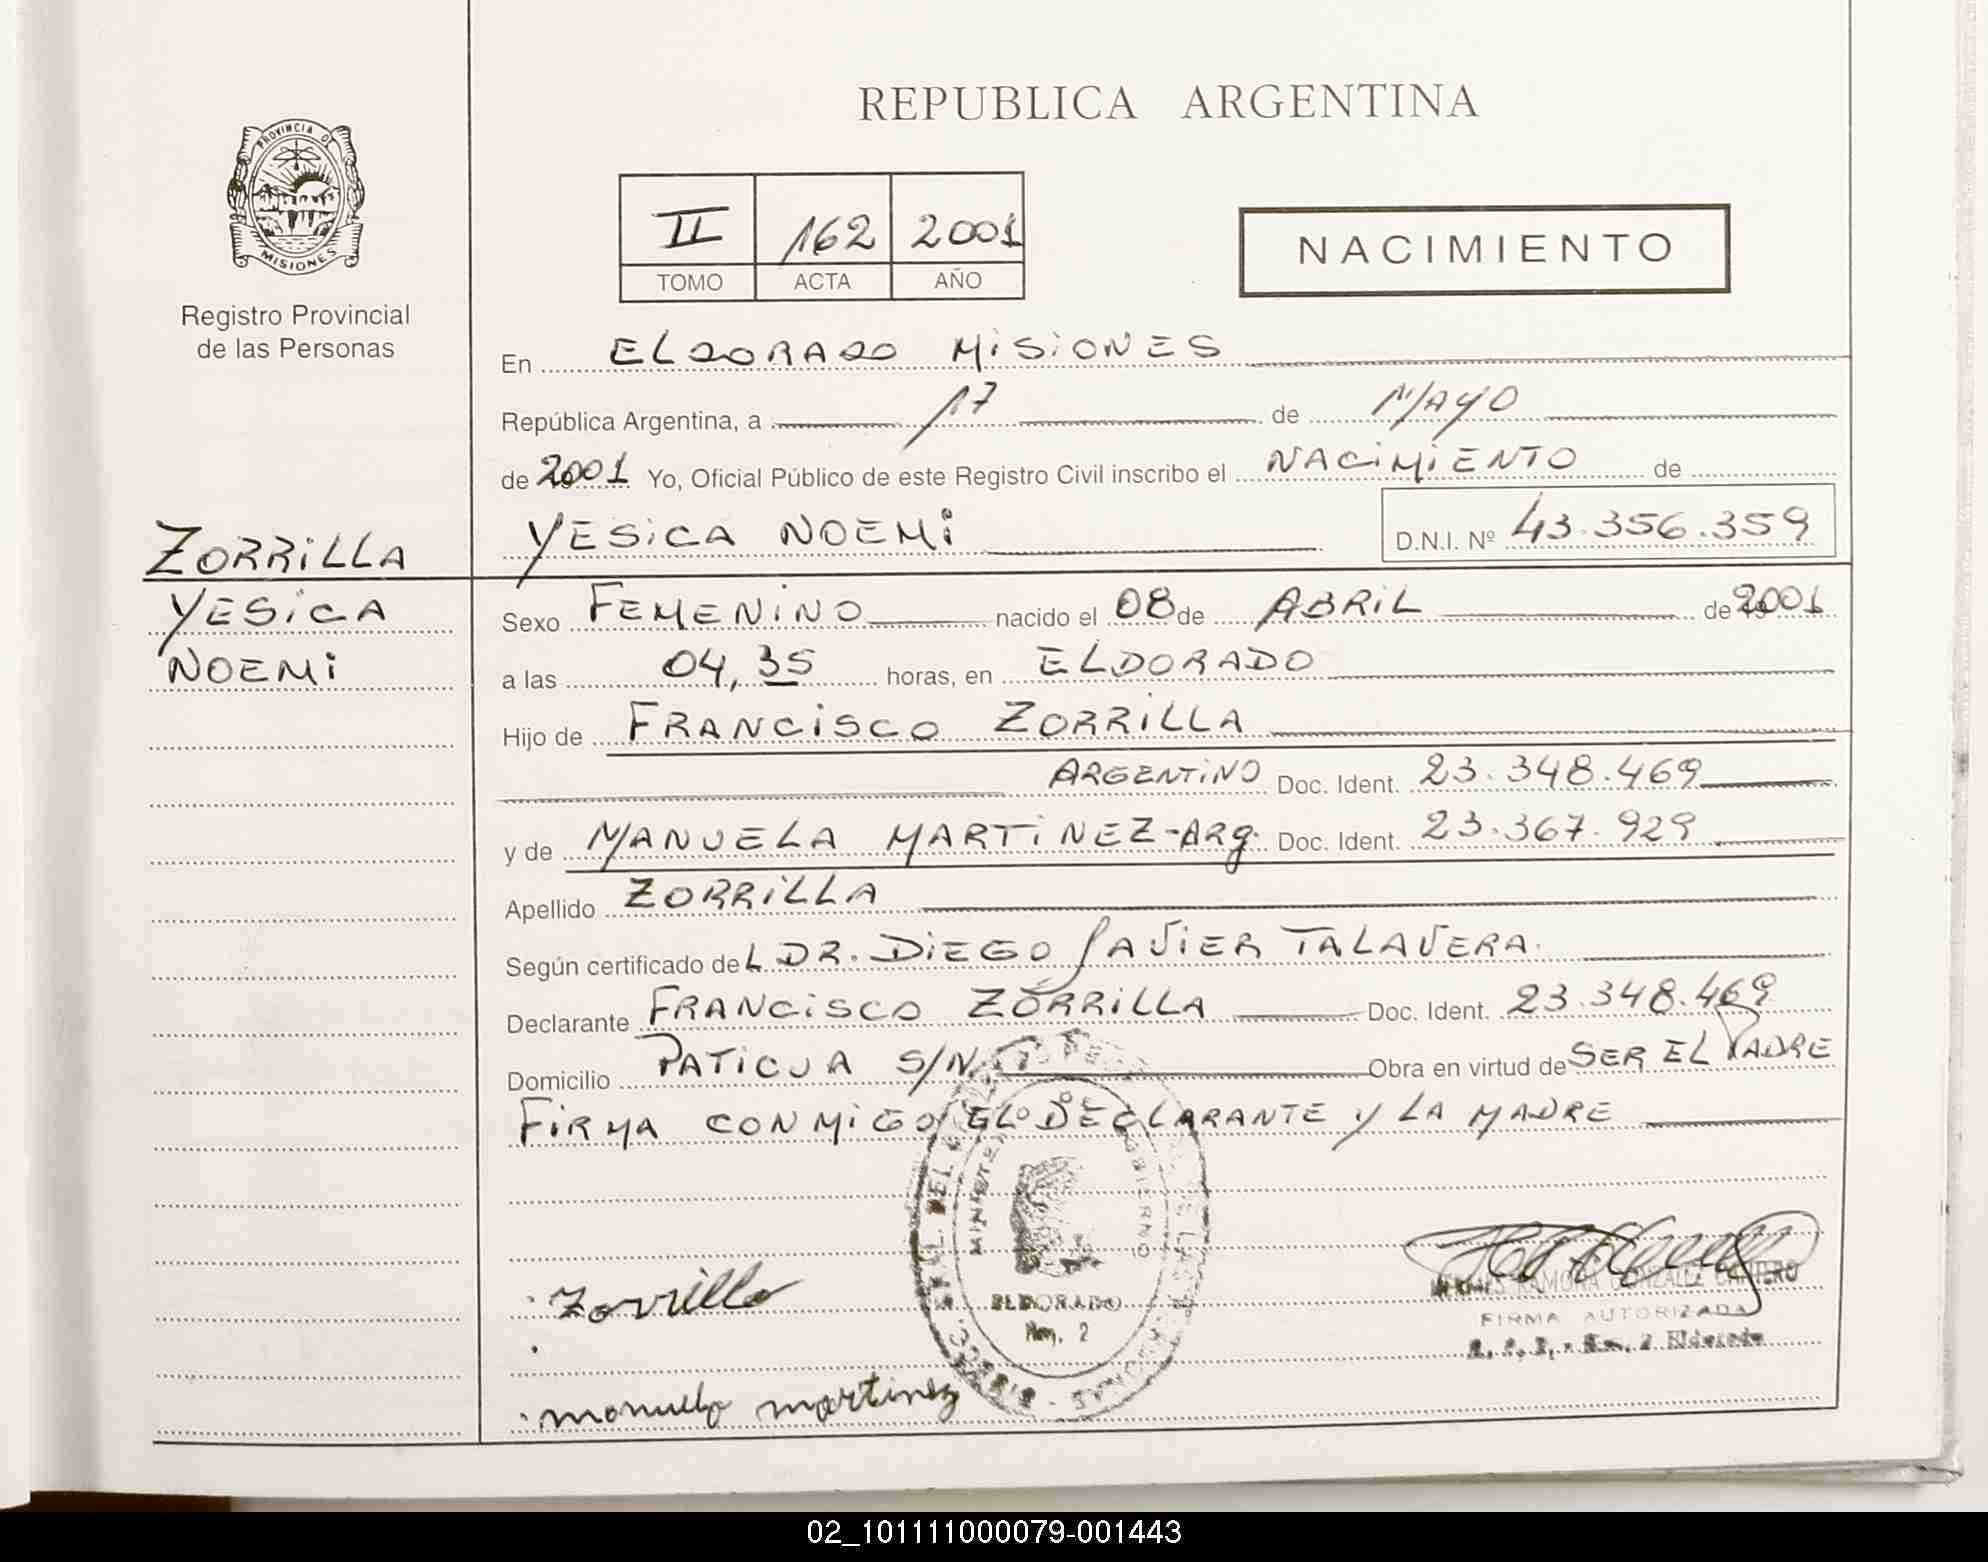 REPUBLICA ARGENTINA
PROVINCIA D
MISIONES
Registro Provincial
de las Personas
II 162 2001
TOMO ACTA AÑO
NACIMIENTO
En ELDORADO MISIONES
República Argentina, a 17 de MAYO
de 2001 Yo, Oficial Público de este Registro Civil inscribo el NACIMIENTO de
YESICA NOEMI D.N.I. Nº 43.356.359
ZORRILLA
YESICA
NOEMI
Sexo FEMENINO nacido el 08 de ABRIL de 2001
a las 04,35 horas, en ELDORADO
Hijo de FRANCISCO ZORRILLA
ARGENTINO Doc. Ident. 23.348.469
y de MANUELA MARTINEZ-ARg. Doc. Ident. 23.367.929
Apellido ZORRILLA
Según certificado deL DR. DIEGO JAVIER TALAVERA.
Declarante FRANCISCO ZORRILLA Doc. Ident. 23.348.469
Domicilio PATICUA S/Nº Obra en virtud de SER EL PADRE
FIRMA CONMIGO EL DECLARANTE Y LA MADRE
ELDORADO
Nm. 2
Zorrilla
RAMONA GONZALEZ CANTERO
FIRMA AUTORIZADA
Eldorado
manuela martinez
02_101111000079-001443